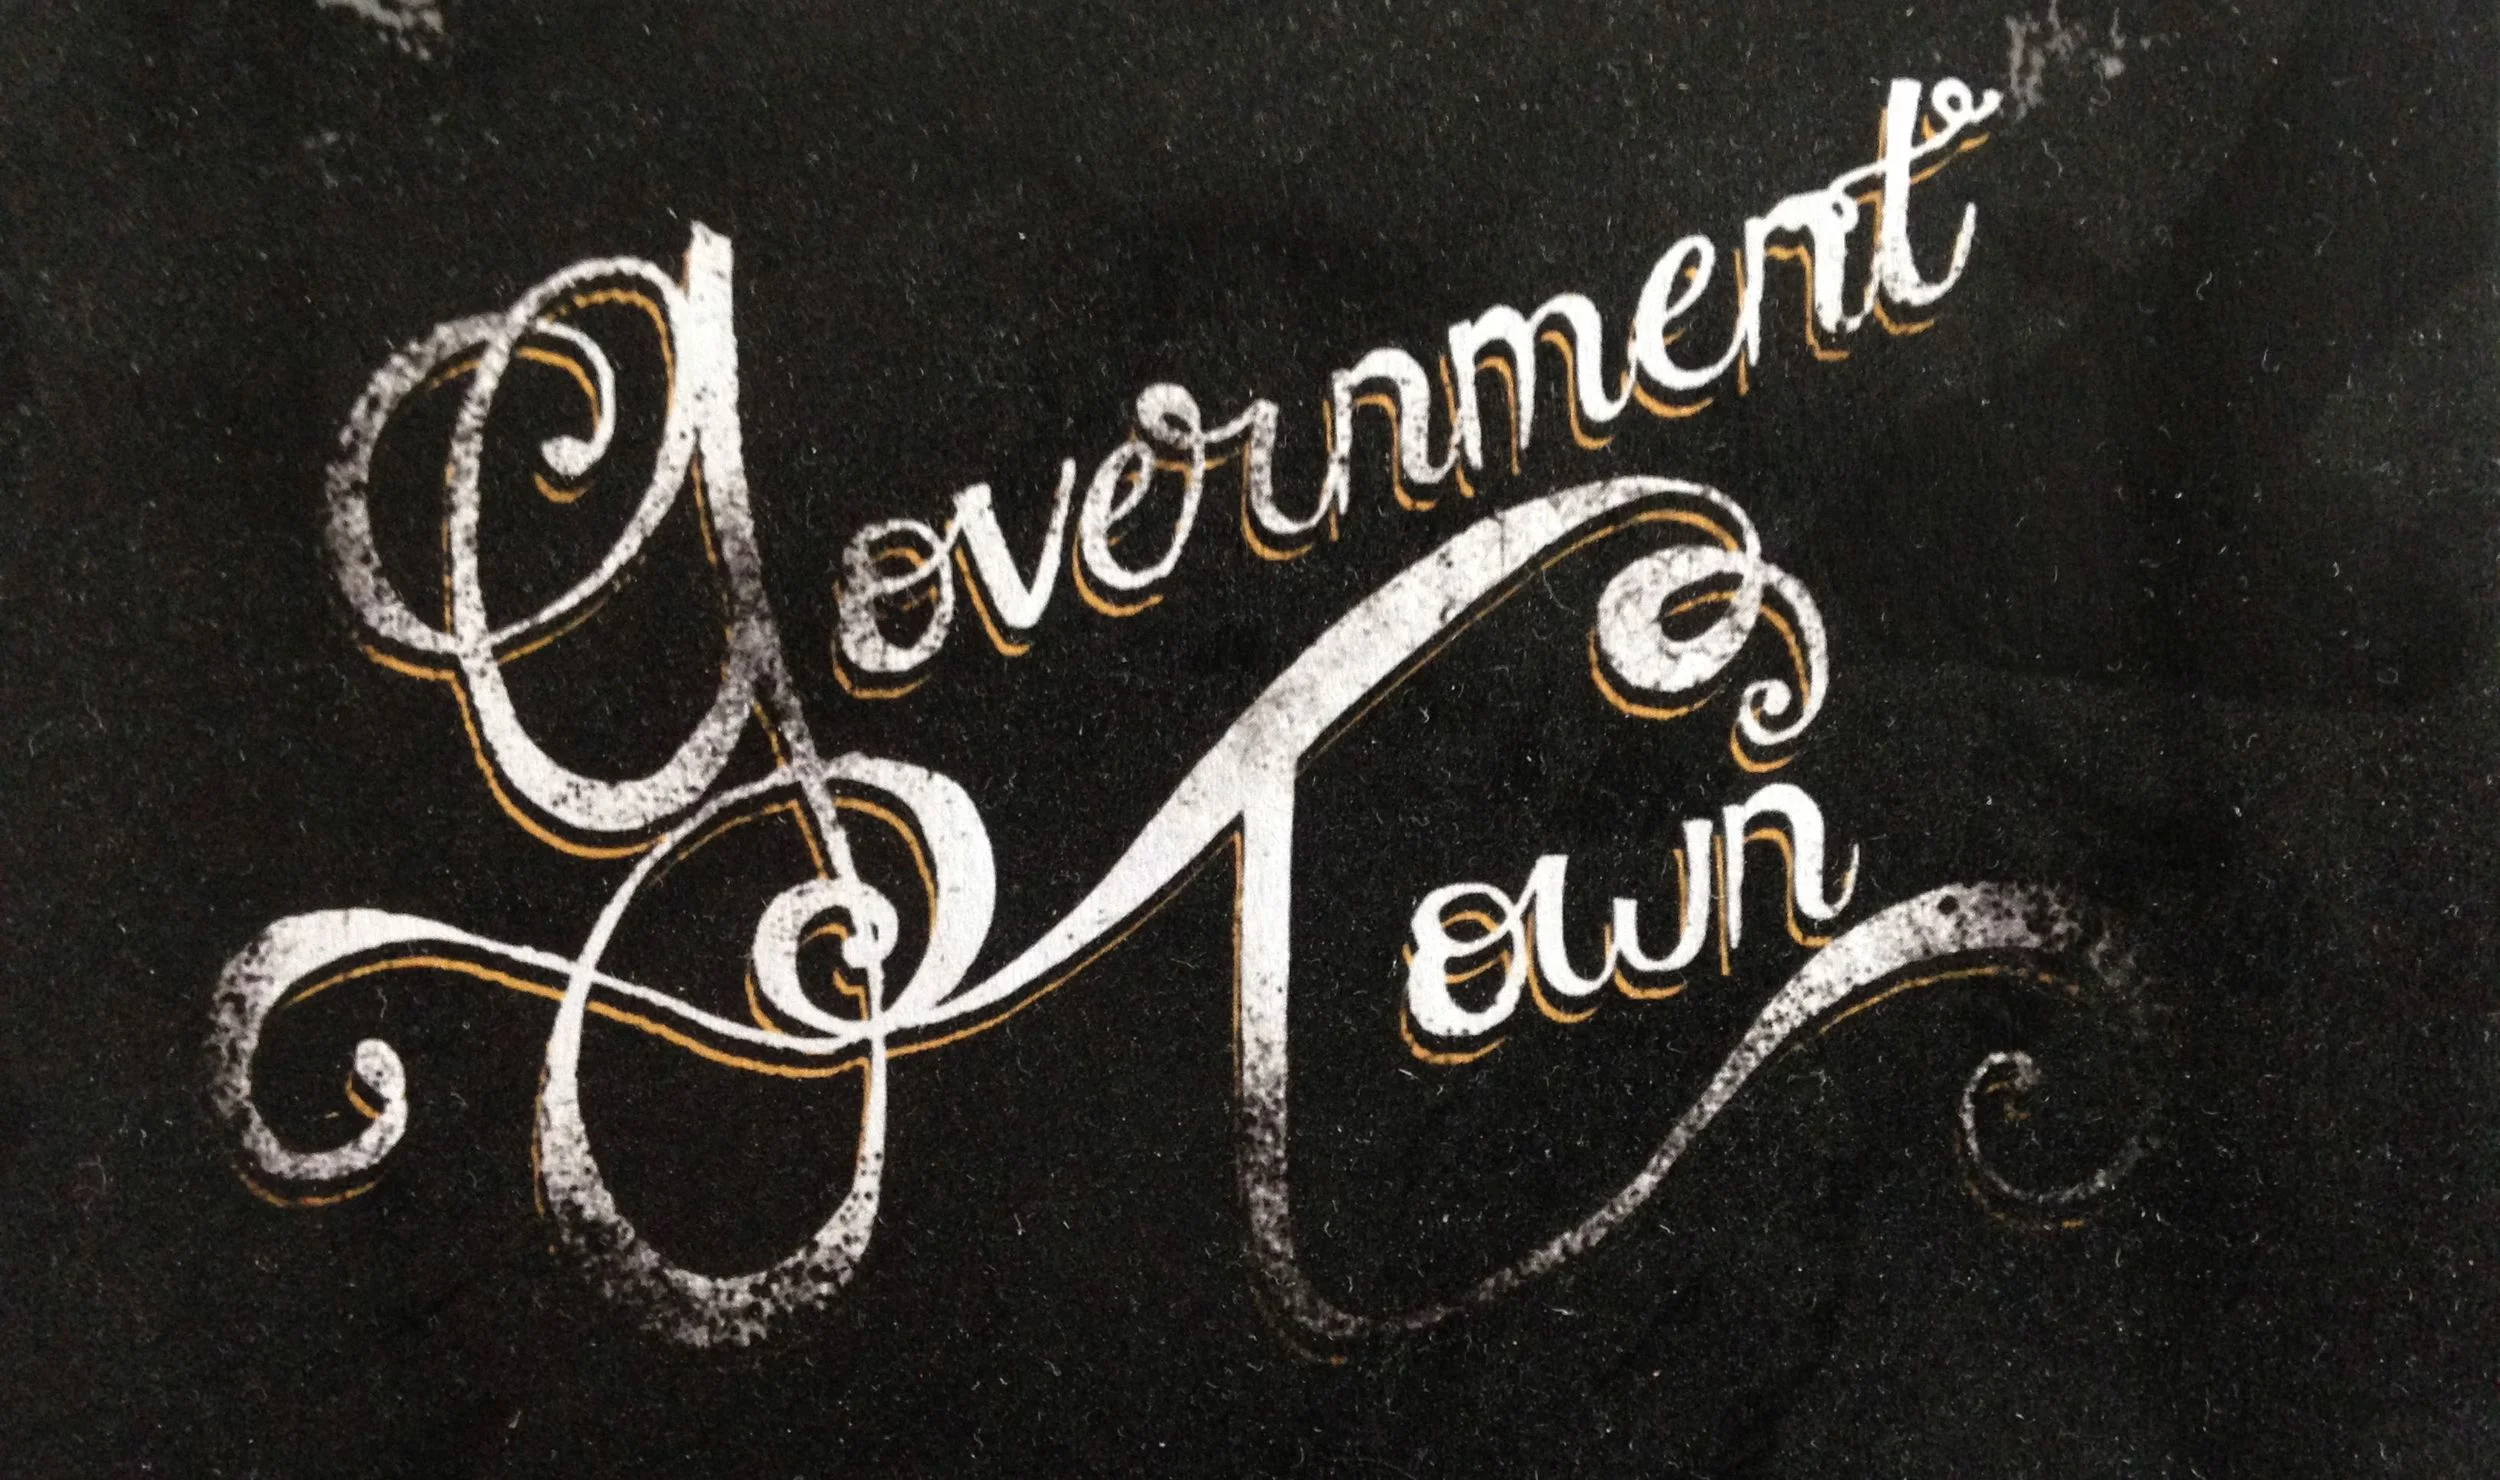 Government
Town